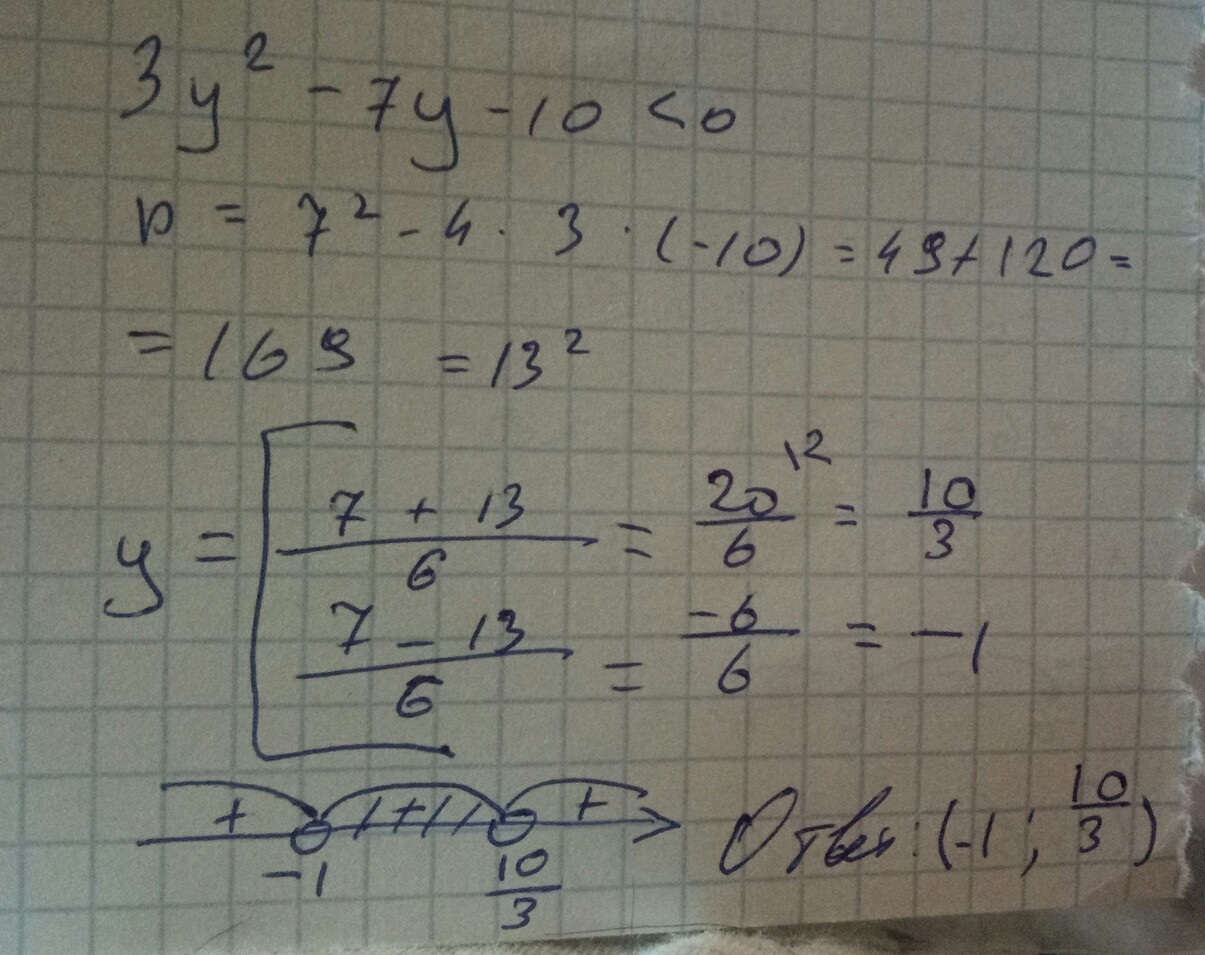 3y² - 7y - 10 < 0
D = 7² - 4 · 3 · (-10) = 49 + 120 =
= 169 = 13²
y = [ (7 + 13)/6 = 20/6 \2 = 10/3
(7 - 13)/6 = -6/6 = -1
+ - +
-1 10/3
Ответ: (-1; 10/3)